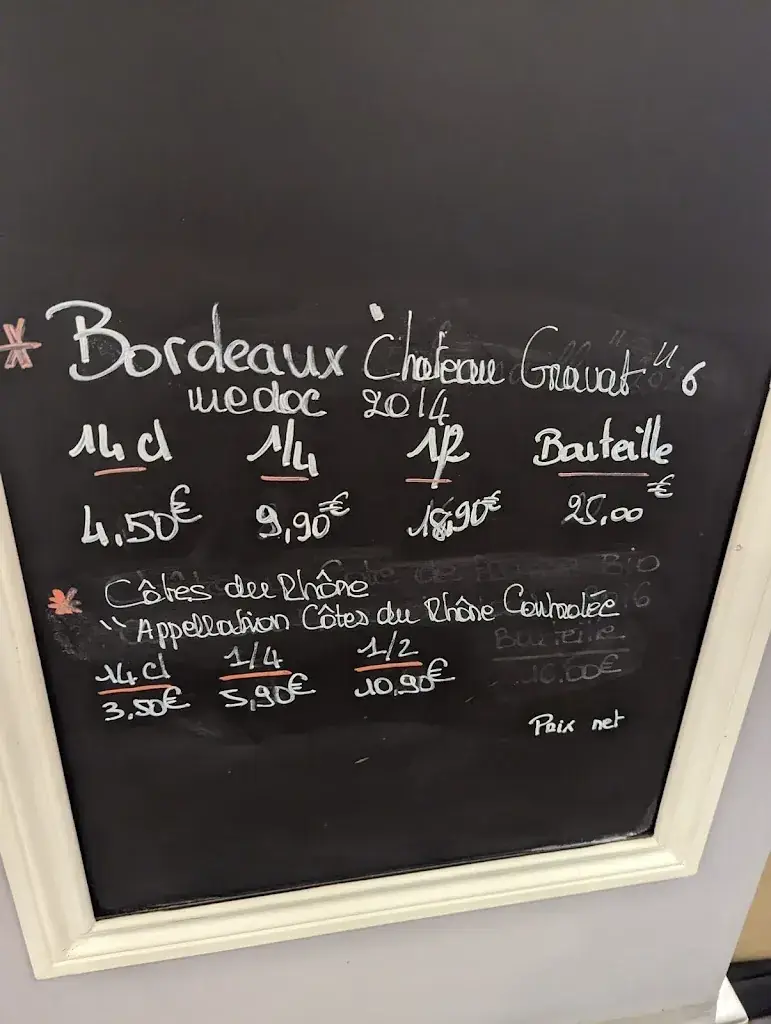 * Bordeaux "Chateau Gravat" 6
medoc 2014
14 cl 1/4 1/2 Bouteille
4,50€ 9,90€ 18,90€ 25,00€
* Côtes du Rhône
"Appellation Côtes du Rhône Controlée
14 cl 1/4 1/2 Bouteille
3,50€ 5,90€ 10,90€ 16.00€
Prix net